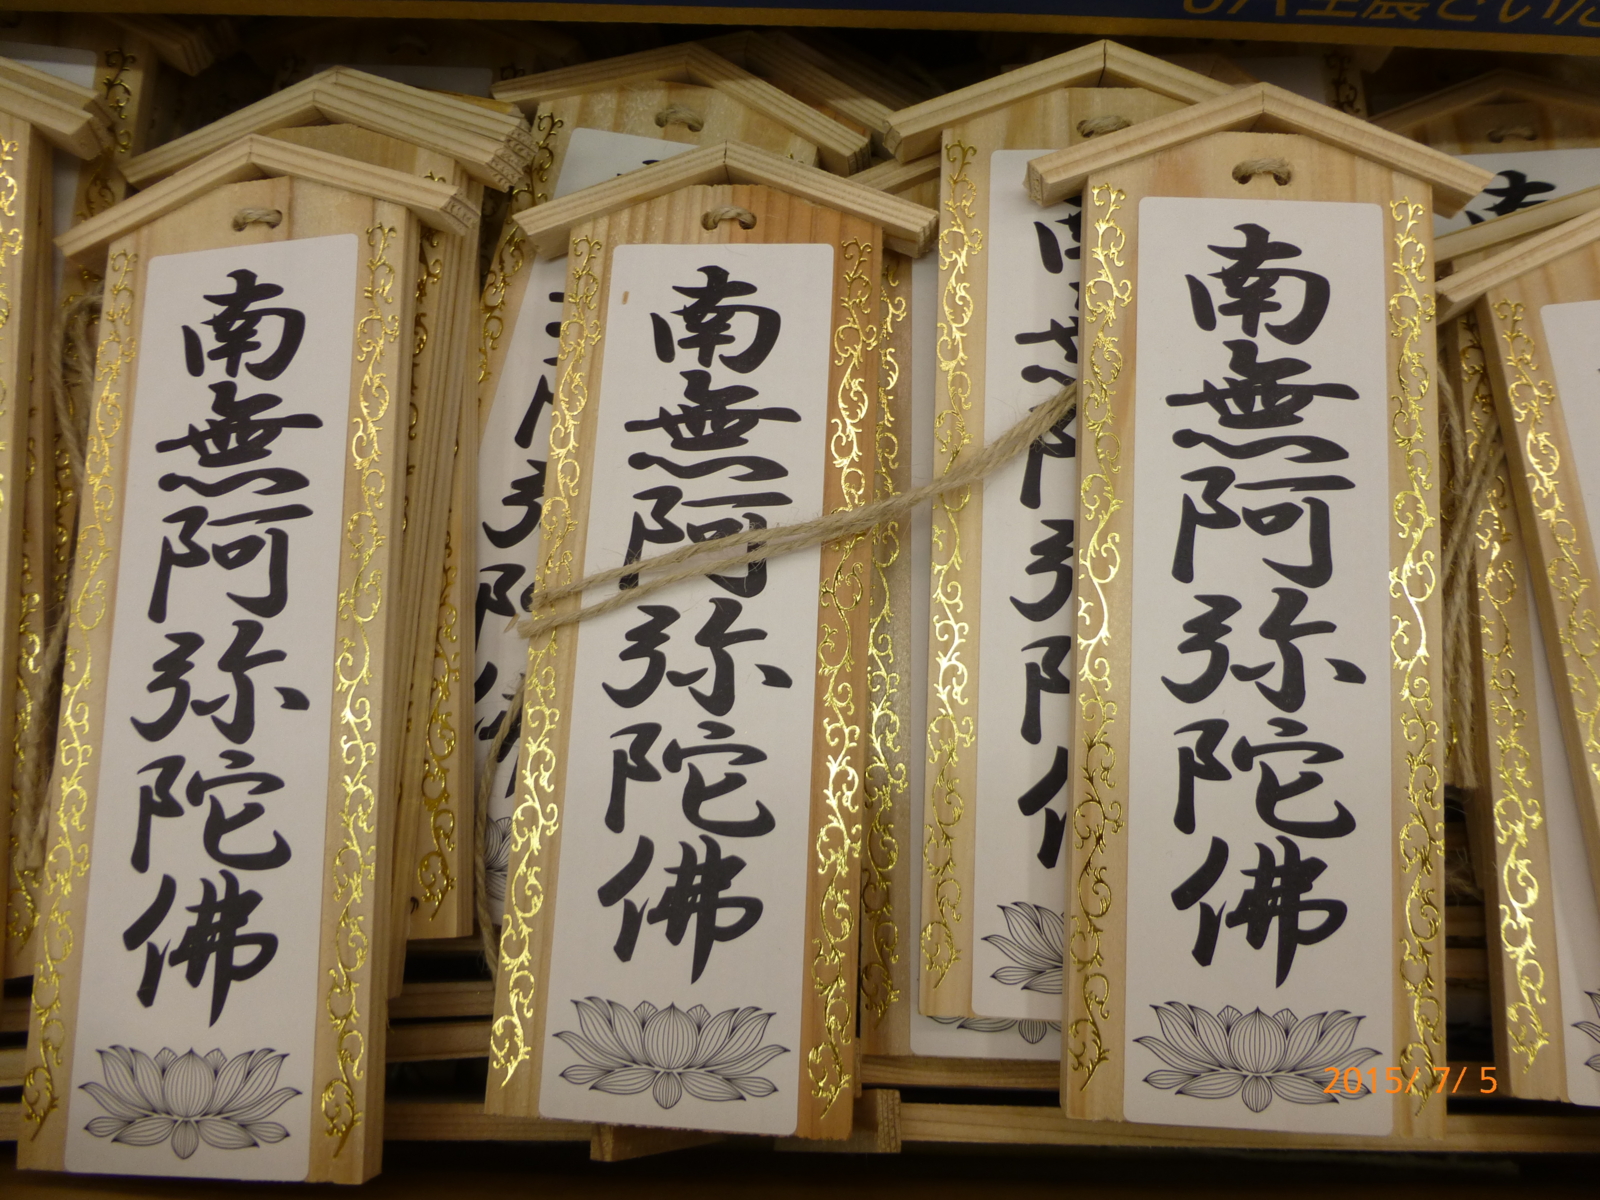 南無阿弥陀佛
南無阿弥陀佛
南無阿弥陀佛
2015/ 7/ 5